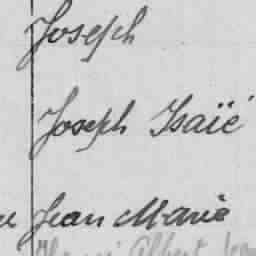 Joseph
Joseph Isaïe
Jean Marie
Albert